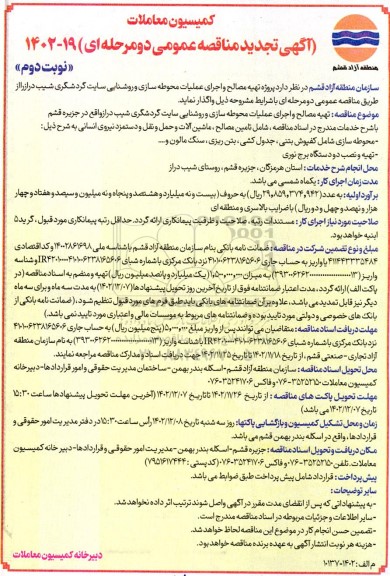 کمیسیون معاملات
(آگهی تجدید مناقصه عمومی دو مرحله ای ) ۱۹-۱۴۰۲
منطقه آزاد قشم
«نوبت دوم»
سازمان منطقه آزاد قشم در نظر دارد پروژه تهیه مصالح و اجرای عملیات محوطه سازی و روشنایی سایت گردشگری شیب دراز را از
طریق مناقصه عمومی دو مرحله ای با شرایط مشروحه ذیل واگذار نماید.
موضوع مناقصه : تهیه مصالح و اجرای عملیات محوطه سازی و روشنایی سایت گردشگری شیب دراز واقع در جزیره قشم
با شرح خدمات مندرج در اسناد مناقصه ، شامل تامین مصالح ، ماشین آلات و حمل و نقل و دستمزد نیروی انسانی به شرح ذیل :
-محوطه سازی شامل کفپوش بتنی ، جدول کشی ، بتن ریزی ، سنگ مالون و ...
-تهیه و نصب دو دستگاه برج نوری
محل انجام شرح خدمات : استان هرمزگان ، جزیره قشم ، روستای شیب دراز
مدت زمان اجرای کار : یکماه شمسی می باشد.
برآورد اولیه: به عدد (۲۹،۸۵۹،۳۷۴،۹۴۲ ریال) به حروف ( بیست و نه میلیارد و هشتصد و پنجاه و نه میلیون و سیصد و هفتاد و چهار
هزار و نهصد و چهل و دو ریال ) با ضرایب بالاسری و منطقه ای
صلاحیت مورد نیاز اجرای کار : مستندات رتبه ، صلاحیت و ظرفیت پیمانکاری ارائه گردد. حداقل رتبه پیمانکاری مورد قبول ، گرید ۵
ابنیه خواهد بود.
مبلغ و نوع تضمین شرکت در مناقصه : ضمانت نامه بانکی بنام سازمان منطقه آزاد قشم با شناسه ملی ۱۴۰۰۲۸۶۱۹۹۸ و کد اقتصادی
۴۱۱۴۴۳۳۳۵۴۸۴ یا واریز به حساب جاری
نزد بانک مرکزی با شماره شبای
پاکت الف) ارائه گردد، مدت اعتبار ضمانتنامه فوق از تاریخ آخرین روز تحویل پیشنهادها (۱۴۰۲/۱۲/۰۷) به مدت سه ماه و برای سه ماه
دیگر نیز قابل تمدید می باشد، علاوه بر آن ضمانتنامه های بانکی باید طبق فرم های مورد قبول تنظیم شود، (ضمانت نامه بانکی از
بانک های خصوصی و دولتی مورد تایید بوده و ضمانتنامه های مربوط به موسسات مالی و اعتباری مورد تایید نمی باشد)
مهلت دریافت اسناد مناقصه : متقاضیان می توانند پس از واریز مبلغ ۵،۰۰۰،۰۰۰ (پنج میلیون ریال) به حساب جاری
نزد بانک مرکزی با شماره شبای
به نام سازمان منطقه
آزاد تجاری - صنعتی قشم ، از تاریخ ۱۴۰۲/۱۱/۱۸ تا تاریخ ۱۴۰۲/۱۱/۲۵ جهت دریافت اسناد و مدارک مناقصه مراجعه نمایند.
محل تحویل اسناد مناقصه : سازمان منطقه آزاد قشم - اسکله بندر بهمن - ساختمان مدیریت حقوقی و امور قراردادها - دبیرخانه
کمیسیون معاملات ۳۵۲۵۲۳۵۰-۰۷۶ و فاکس ۳۵۲۴۱۷۰۶-۰۷۶
مهلت تحویل پاکت های مناقصه : از تاریخ ۱۴۰۲/۱۱/۲۶ تا تاریخ ۱۴۰۲/۱۲/۰۷ (آخرین مهلت تحویل پیشنهادها ساعت ۱۵:۳۰
تاریخ ۱۴۰۲/۱۲/۰۷ می باشد)
زمان و محل تشکیل کمیسیون و بازگشایی پاکتها: روز سه شنبه تاریخ ۱۴۰۲/۱۲/۰۸ رأس ساعت ۱۵:۳۰ در دفتر مدیریت امور حقوقی و
قراردادها ، واقع در اسکله بندر بهمن قشم می باشد.
مکان دریافت و تحویل اسناد مناقصه : جزیره قشم - اسکله بندر بهمن - مدیریت امور حقوقی و قراردادها - دبیر خانه کمیسیون
معاملات. تلفن ۳۵۲۵۲۳۵۰-۰۷۶ و فاکس ۳۵۲۴۱۷۰۶-۰۷۶ (کدپستی : ۷۹۵۱۶۱۷۴۴۴)
پیش پرداخت : قرارداد شامل پیش پرداخت طبق ضوابط می باشد.
سایر توضیحات :
- به پیشنهاداتی که پس از انقضای مدت مقرر در آگهی واصل شوند ترتیب اثر داده نخواهد شد.
- سایر اطلاعات و جزئیات مربوطه در اسناد مناقصه مندرج است.
- تضمین حسن انجام کار در موضوع این مناقصه لحاظ خواهد شد.
- هزینه هر نوبت انتشار آگهی به عهده برنده مناقصه خواهد بود.
م الف : ۱۴۰۲-۱۰۱۳۷
دبیرخانه کمیسیون معاملات